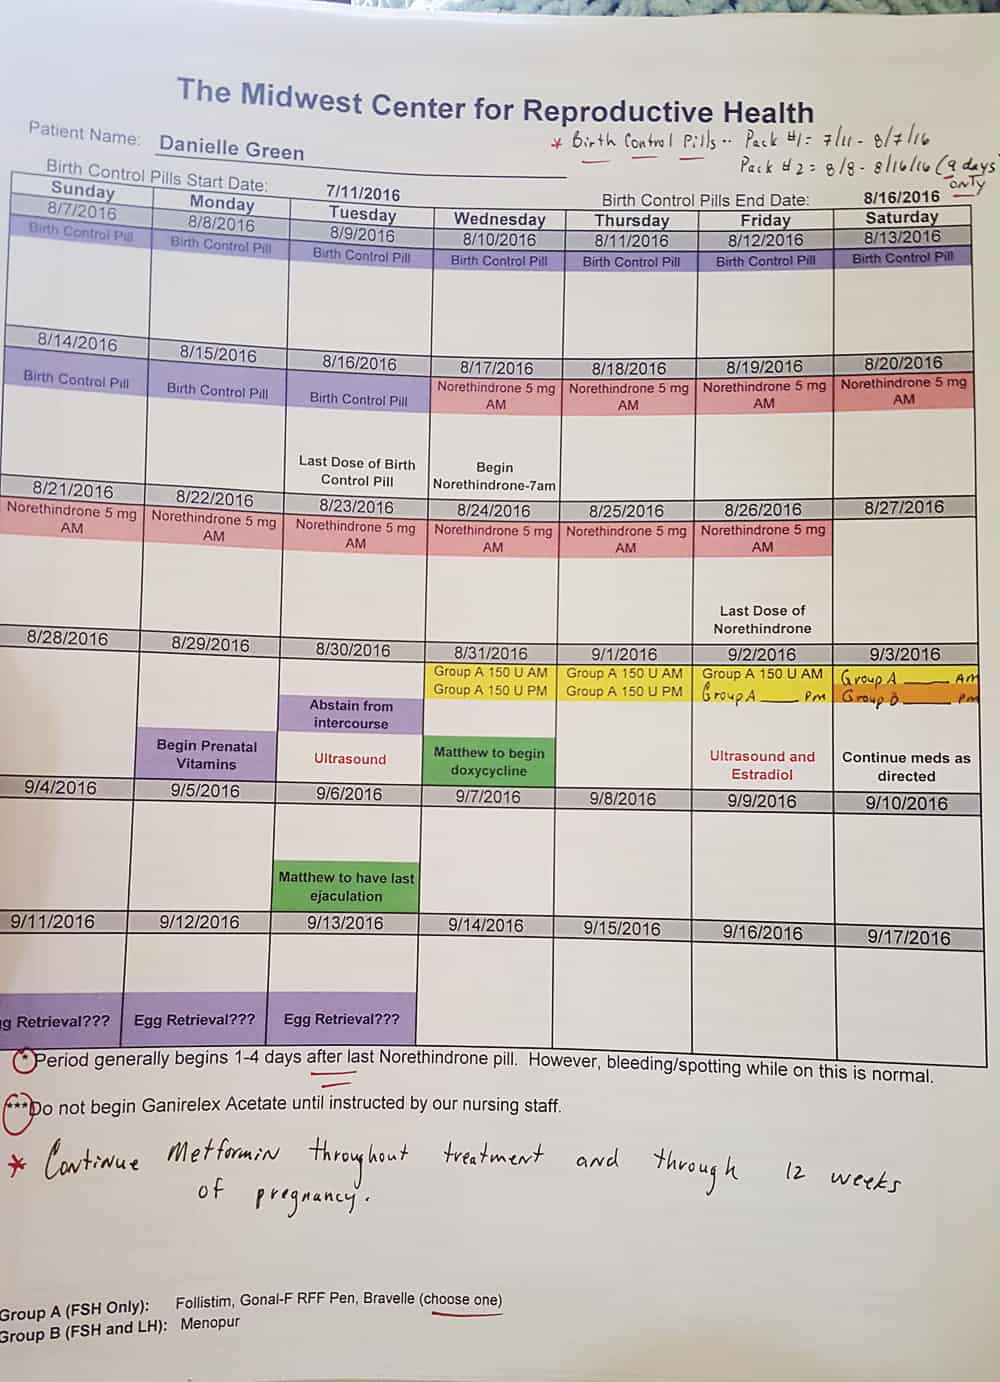 The Midwest Center for Reproductive Health
Patient Name: Danielle Green
* Birth Control Pills -- Pack #1 = 7/11 - 8/7/16
Pack #2 = 8/8 - 8/16/16 (9 days
ONLY
Birth Control Pills Start Date: 7/11/2016 Birth Control Pills End Date: 8/16/2016
Sunday Monday Tuesday Wednesday Thursday Friday Saturday
8/7/2016 8/8/2016 8/9/2016 8/10/2016 8/11/2016 8/12/2016 8/13/2016
Birth Control Pill Birth Control Pill Birth Control Pill Birth Control Pill Birth Control Pill Birth Control Pill Birth Control Pill
8/14/2016 8/15/2016 8/16/2016 8/17/2016 8/18/2016 8/19/2016 8/20/2016
Birth Control Pill Birth Control Pill Birth Control Pill Norethindrone 5 mg Norethindrone 5 mg Norethindrone 5 mg Norethindrone 5 mg
AM AM AM AM
Last Dose of Birth Begin
Control Pill Norethindrone-7am
8/21/2016 8/22/2016 8/23/2016 8/24/2016 8/25/2016 8/26/2016 8/27/2016
Norethindrone 5 mg Norethindrone 5 mg Norethindrone 5 mg Norethindrone 5 mg Norethindrone 5 mg Norethindrone 5 mg
AM AM AM AM AM AM
Last Dose of
Norethindrone
8/28/2016 8/29/2016 8/30/2016 8/31/2016 9/1/2016 9/2/2016 9/3/2016
Group A 150 U AM Group A 150 U AM Group A 150 U AM Group A ____ AM
Group A 150 U PM Group A 150 U PM Group A ____ PM Group B ____ PM
Abstain from
intercourse
Begin Prenatal Ultrasound Matthew to begin Ultrasound and Continue meds as
Vitamins doxycycline Estradiol directed
9/4/2016 9/5/2016 9/6/2016 9/7/2016 9/8/2016 9/9/2016 9/10/2016
Matthew to have last
ejaculation
9/11/2016 9/12/2016 9/13/2016 9/14/2016 9/15/2016 9/16/2016 9/17/2016
g Retrieval??? Egg Retrieval??? Egg Retrieval???
*Period generally begins 1-4 days after last Norethindrone pill. However, bleeding/spotting while on this is normal.
***Do not begin Ganirelex Acetate until instructed by our nursing staff.
* Continue Metformin throughout treatment and through 12 weeks
of pregnancy.
Group A (FSH Only): Follistim, Gonal-F RFF Pen, Bravelle (choose one)
Group B (FSH and LH): Menopur